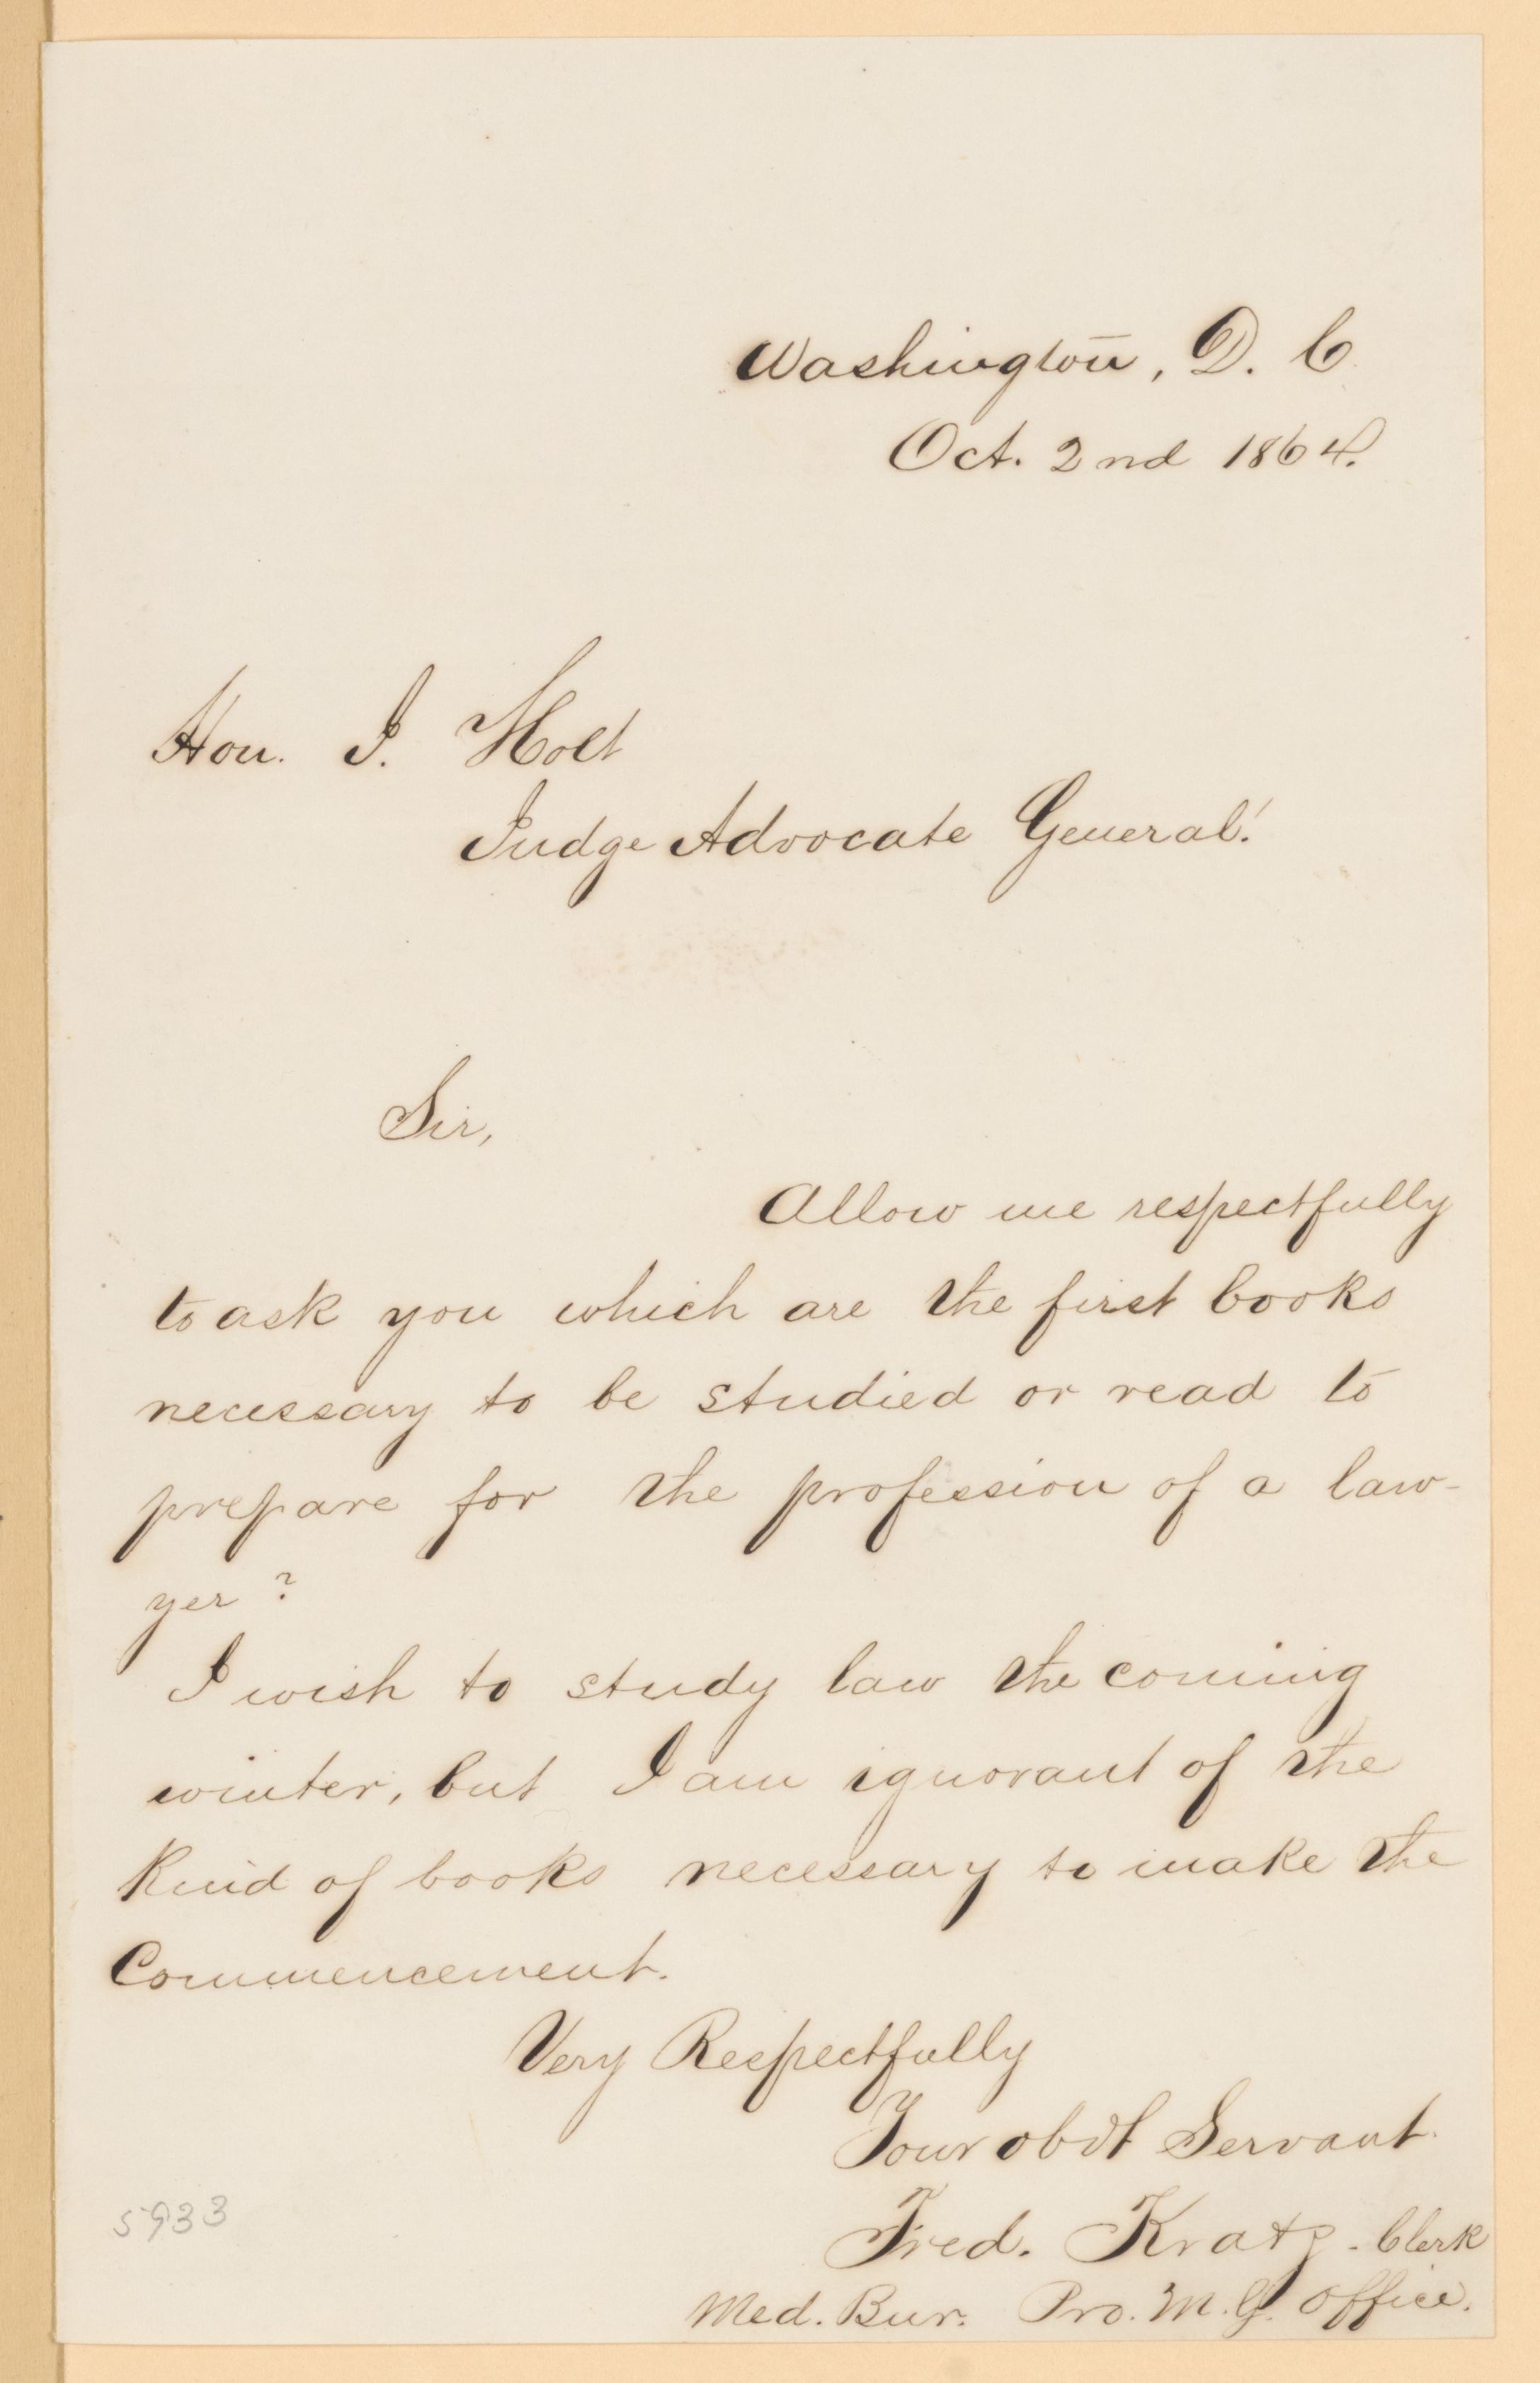 Washington, D. C.
Oct. 2nd 1864.
Hon. J. Holt
Judge Advocate General!
Sir,
Allow me respectfully
to ask you which are the first books
necessary to be studied or read to
prepare for the profession of a law-
yer?
I wish to study law the coming
winter, but I am ignorant of the
kind of books necessary to make the
Commencement.
Very Respectfully
Your obdt Servant.
Fred. Kratz - Clerk
Med. Bur. Pro. M. G. Office.
5933